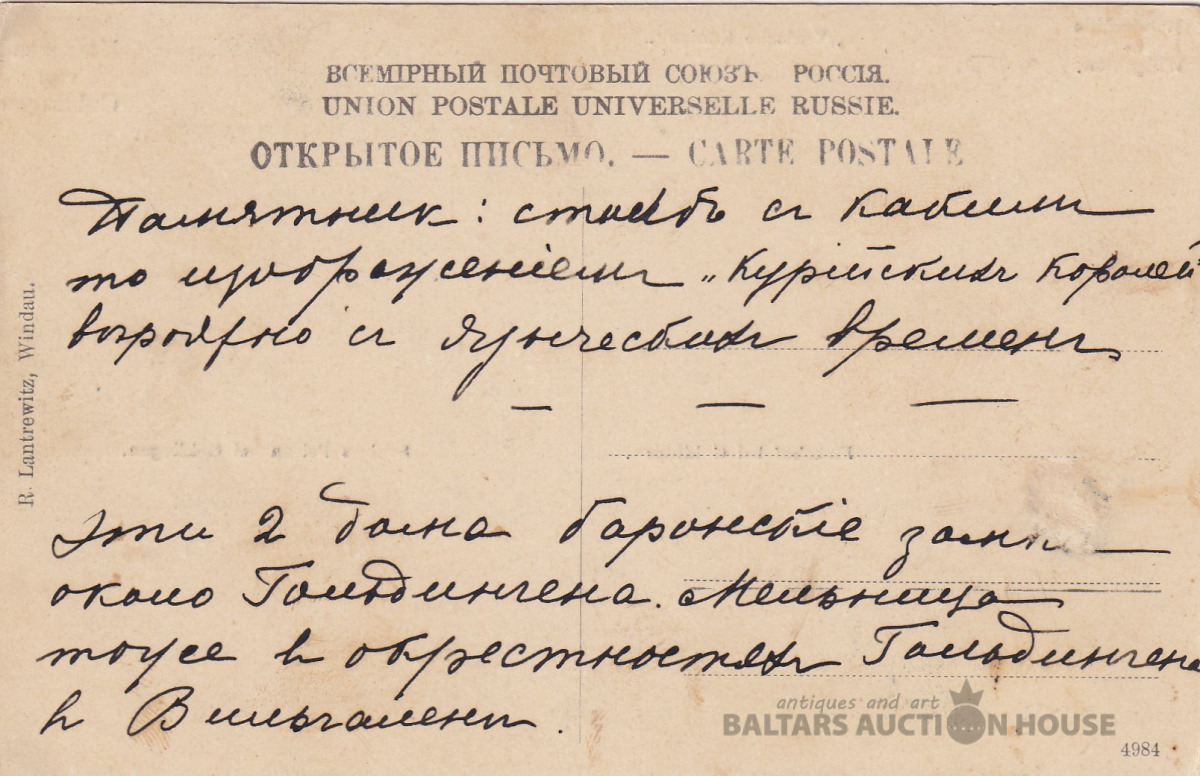 ВСЕМІРНЫЙ ПОЧТОВЫЙ СОЮЗЪ РОССІЯ.
UNION POSTALE UNIVERSELLE RUSSIE.
ОТКРЫТОЕ ПИСЬМО. — CARTE POSTALE
Памятник: столбъ съ какимъ
то изображеніемъ „Курійскихъ Королей"
вѣроятно съ языческихъ временъ
— — —
Эти 2 дома баронскіе замки
около Гольдингена. Мельница
тоже въ окрестностяхъ Гольдингена
въ Вильгаленъ.
R. Lantrewitz, Windau.
antiques and art
BALTARS AUCTION HOUSE
4984